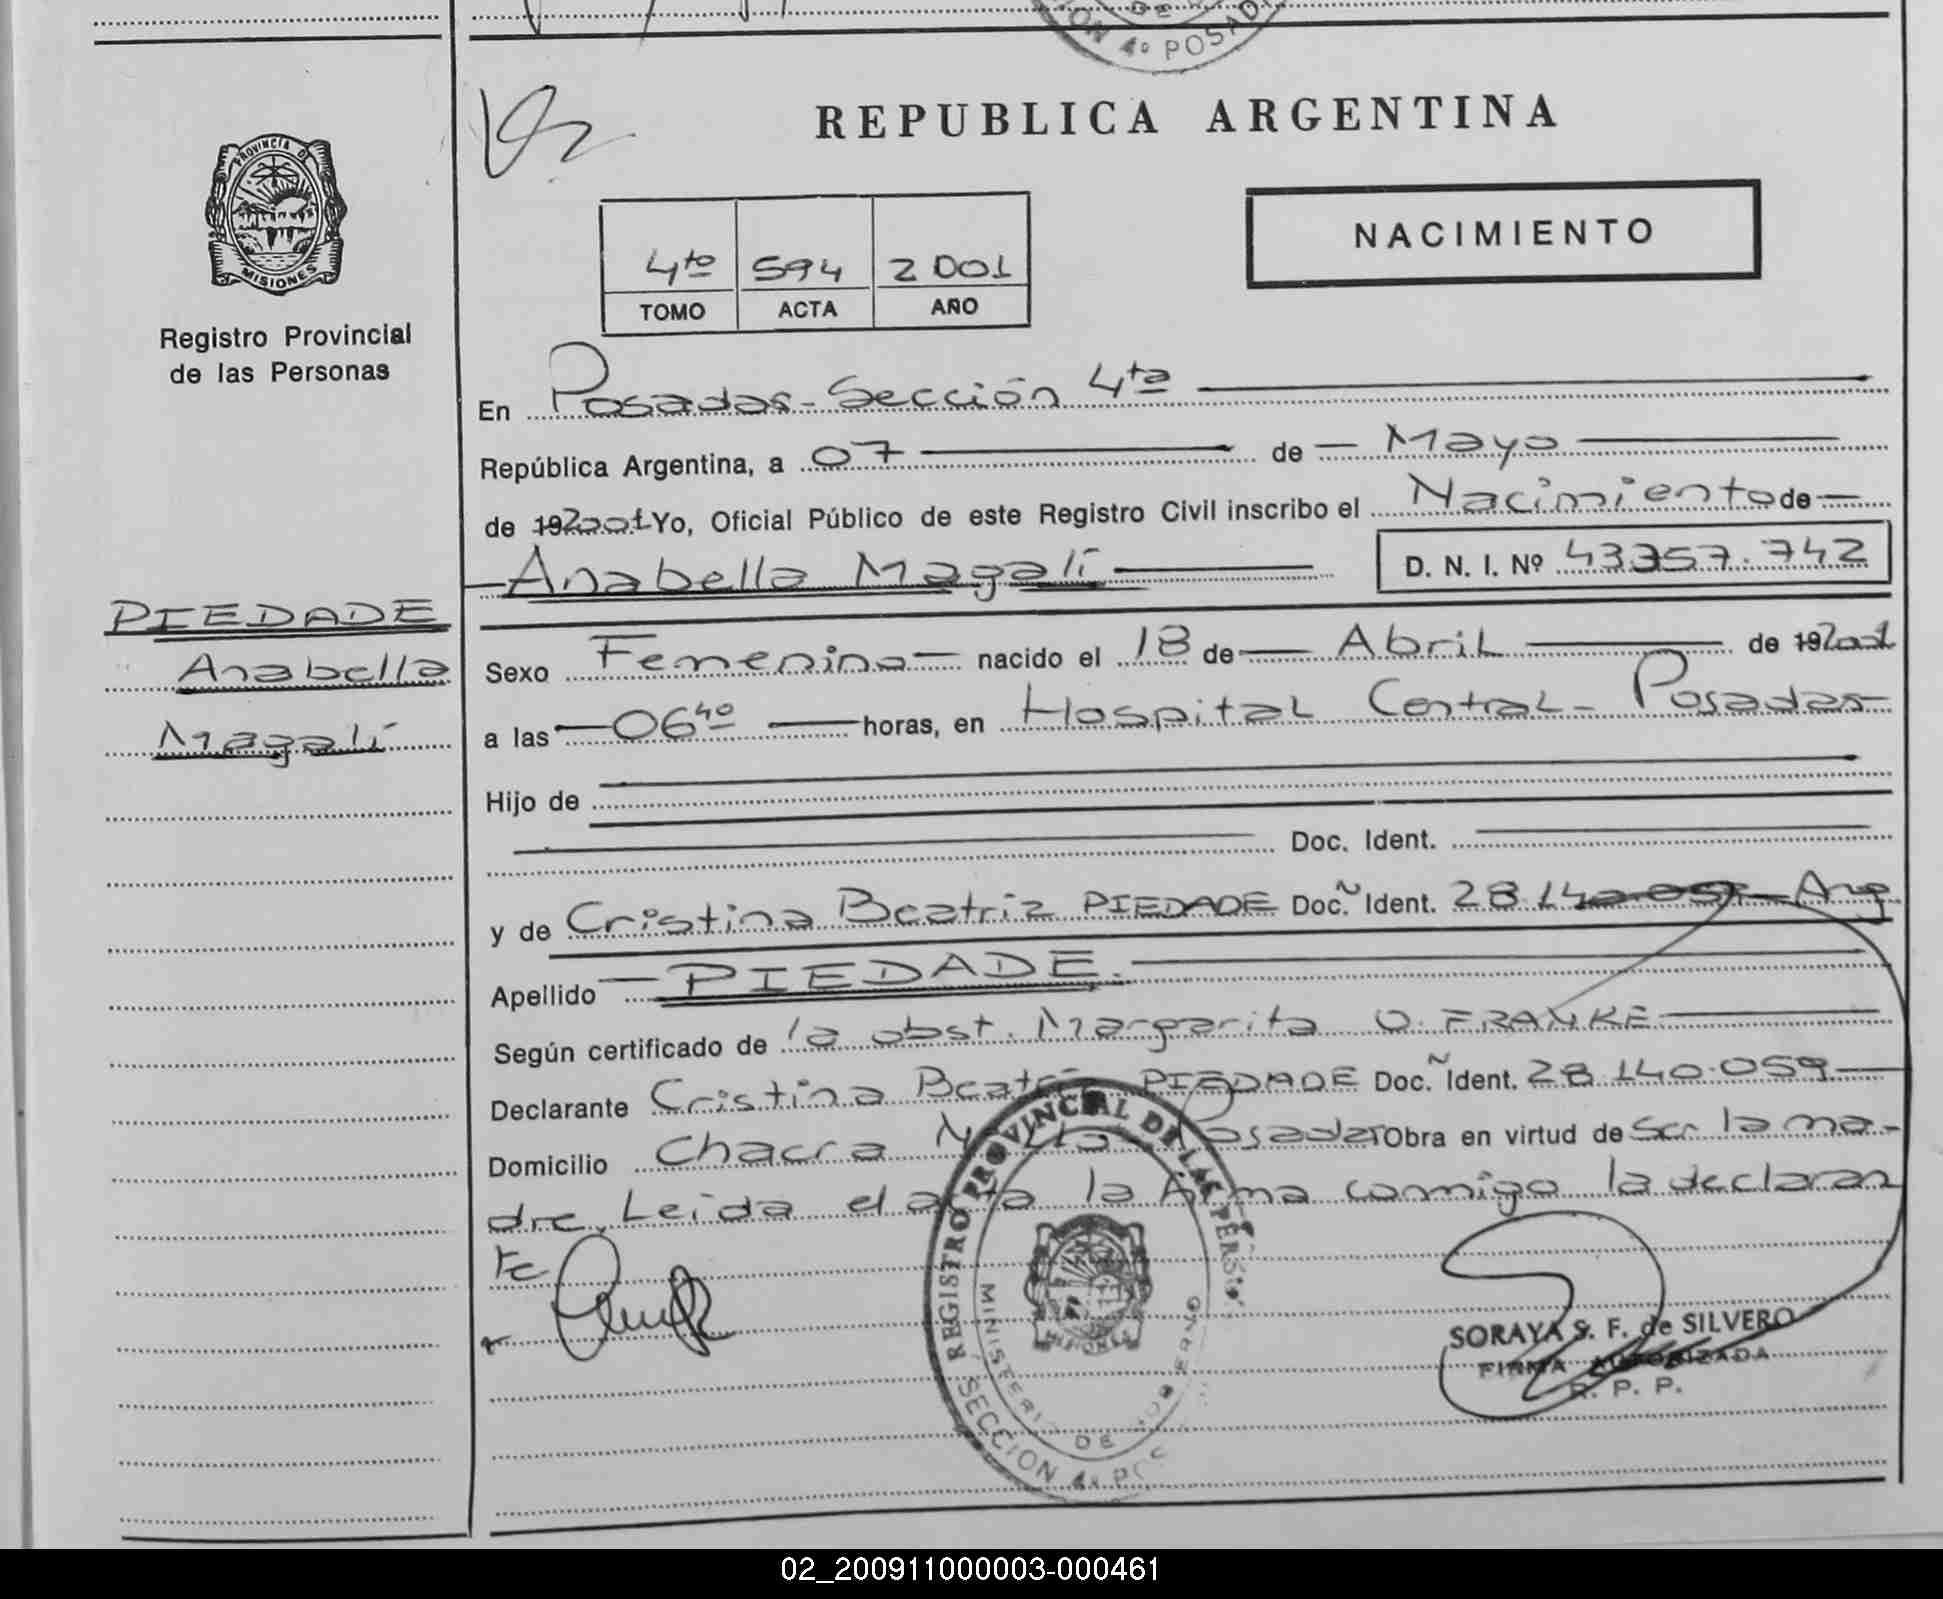 CION 4º POSADA
DE
REPUBLICA ARGENTINA
PROVINCIA DE
MISIONES
NACIMIENTO
4to 594 2001
TOMO ACTA AÑO
Registro Provincial
de las Personas
En Posadas - Sección 4ta
República Argentina, a 07 de Mayo
de 192001 Yo, Oficial Público de este Registro Civil inscribo el Nacimiento de
Anabella Magalí D. N. I. Nº 43357.742
PIEDADE
Anabella
Magalí
Sexo Femenino nacido el 18 de Abril de 192001
a las 06 40 horas, en Hospital Central - Posadas
Hijo de
Doc. Ident.
y de Cristina Beatriz PIEDADE Doc. Ñ Ident. 28.140.059 Arg
Apellido PIEDADE.
Según certificado de la obst. Margarita O. FRANKE
Declarante Cristina Beatriz PIEDADE Doc. Ñ Ident. 28.140.059
Domicilio Chacra Posadas Obra en virtud de Ser la ma-
dre, Leida el acta la firma conmigo la declaran
te
REGISTRO PROVINCIAL DE LAS PERSO
MINISTERIO DE GOBIERNO
MISIONES
SECCION 4º POS
SORAYA S. F. de SILVERO
FIRMA AUTORIZADA
R. P. P.
02_200911000003-000461